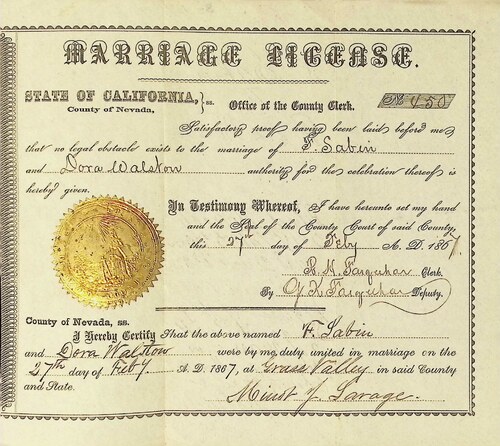 MARRIAGE LICENSE.
STATE OF CALIFORNIA, } ss.
County of Nevada.
Office of the County Clerk.
No 450
Satisfactory proof having been laid before me
that no legal obstacle exists to the marriage of F. Sabin
and Dora Walston authority for the celebration thereof is
hereby given.
In Testimony Whereof, I have hereunto set my hand
and the Seal of the County Court of said County,
this 27th day of Feby A. D. 1867
R. H. Farquhar Clerk.
By Farquhar Deputy.
County of Nevada, ss.
I Hereby Certify That the above named F. Sabin
and Dora Walston were by me duly united in marriage on the
27th day of Feby A. D. 1867, at Grass Valley in said County
and State.